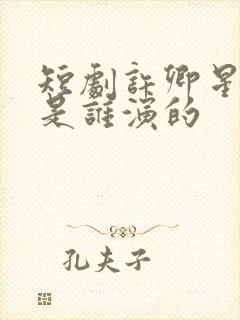 短劇許卿星
是誰演的
孔夫子